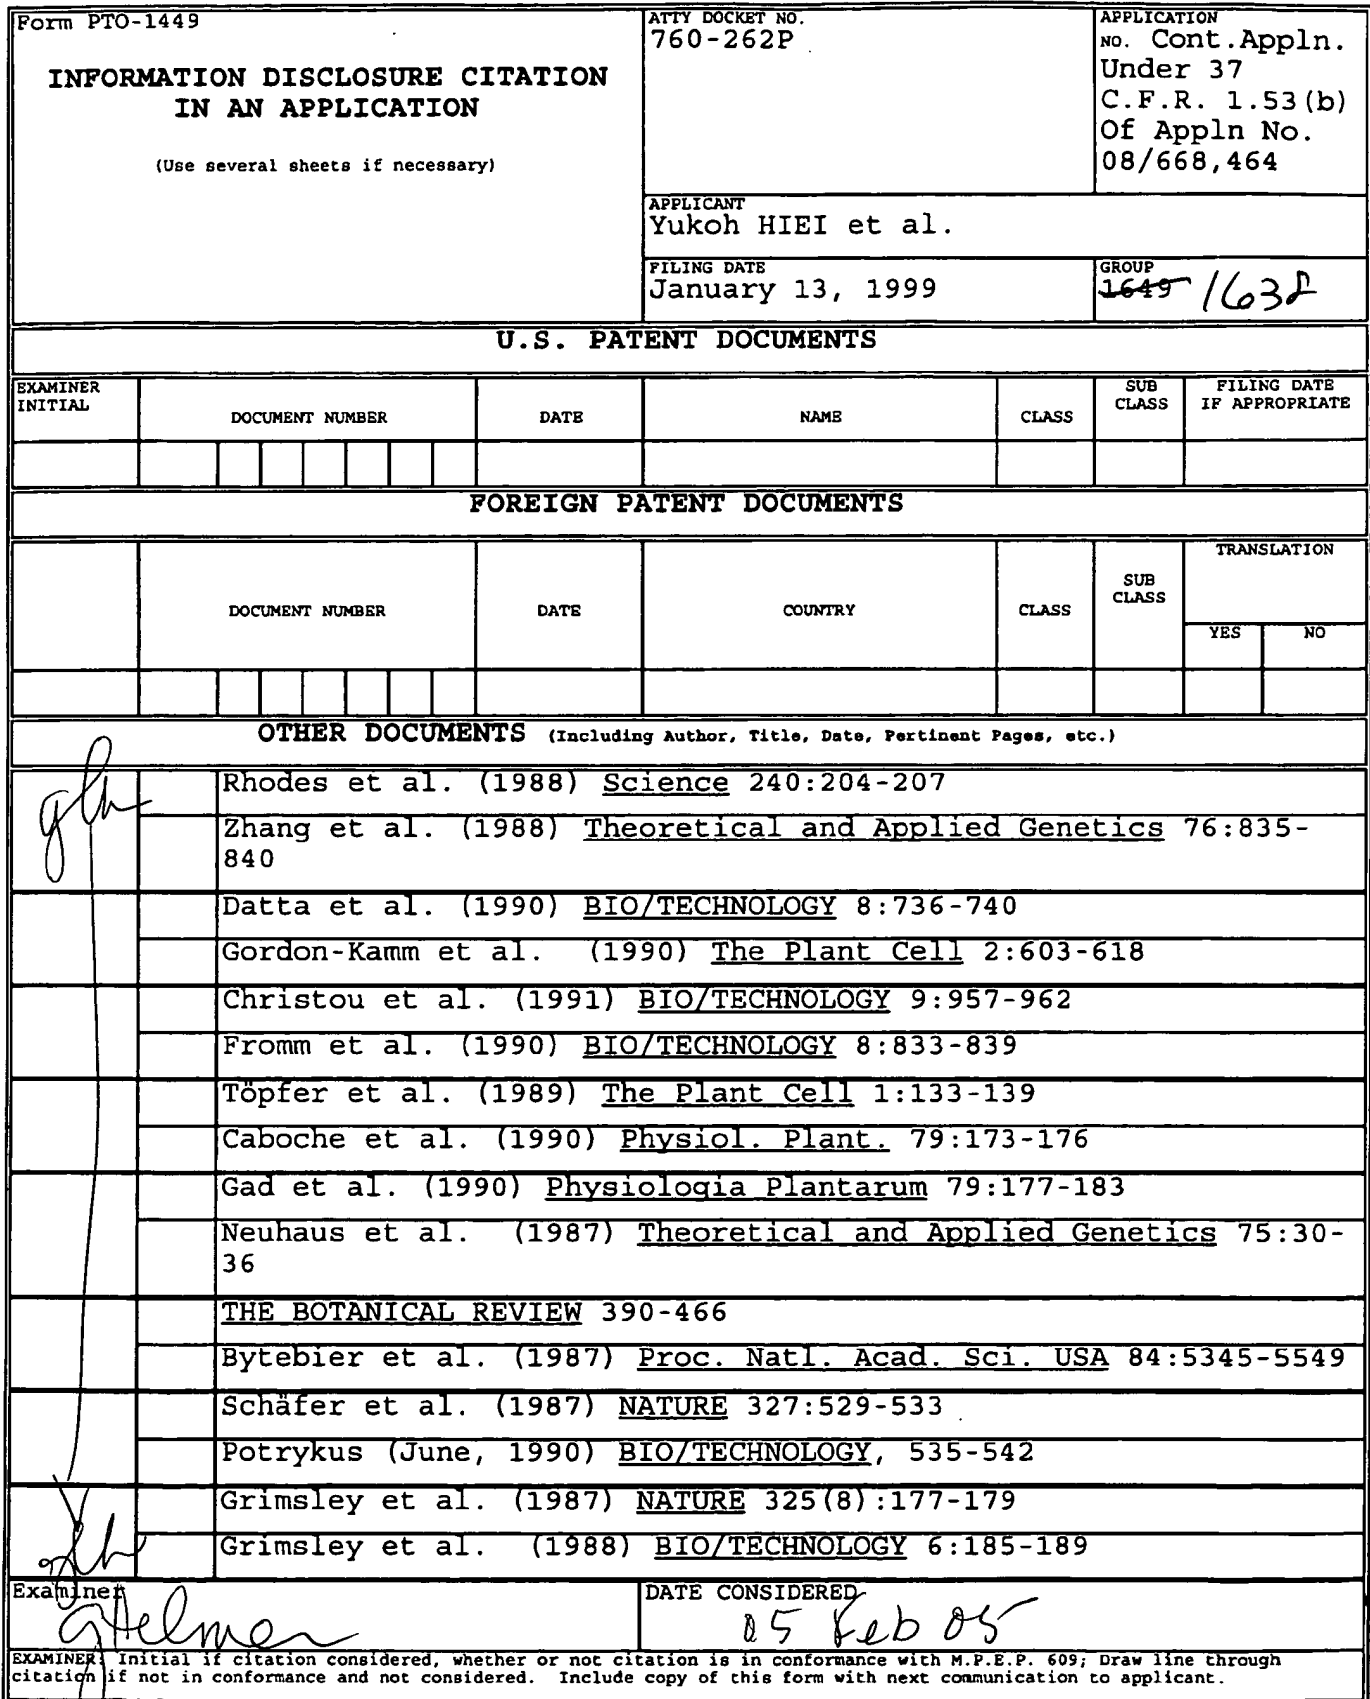 Form PTO-1449
INFORMATION DISCLOSURE CITATION
IN AN APPLICATION
(Use several sheets if necessary)
ATTY DOCKET NO.
760-262P
APPLICATION
NO. Cont.Appln.
Under 37
C.F.R. 1.53(b)
Of Appln No.
08/668,464
APPLICANT
Yukoh HIEI et al.
FILING DATE
January 13, 1999
GROUP
1649 1638
U.S. PATENT DOCUMENTS
EXAMINER
INITIAL
DOCUMENT NUMBER
DATE
NAME
CLASS
SUB
CLASS
FILING DATE
IF APPROPRIATE
FOREIGN PATENT DOCUMENTS
DOCUMENT NUMBER
DATE
COUNTRY
CLASS
SUB
CLASS
TRANSLATION
YES
NO
OTHER DOCUMENTS (Including Author, Title, Date, Pertinent Pages, etc.)
Rhodes et al. (1988) Science 240:204-207
Zhang et al. (1988) Theoretical and Applied Genetics 76:835-
840
Datta et al. (1990) BIO/TECHNOLOGY 8:736-740
Gordon-Kamm et al. (1990) The Plant Cell 2:603-618
Christou et al. (1991) BIO/TECHNOLOGY 9:957-962
Fromm et al. (1990) BIO/TECHNOLOGY 8:833-839
Töpfer et al. (1989) The Plant Cell 1:133-139
Caboche et al. (1990) Physiol. Plant. 79:173-176
Gad et al. (1990) Physiologia Plantarum 79:177-183
Neuhaus et al. (1987) Theoretical and Applied Genetics 75:30-
36
THE BOTANICAL REVIEW 390-466
Bytebier et al. (1987) Proc. Natl. Acad. Sci. USA 84:5345-5549
Schäfer et al. (1987) NATURE 327:529-533
Potrykus (June, 1990) BIO/TECHNOLOGY, 535-542
Grimsley et al. (1987) NATURE 325(8):177-179
Grimsley et al. (1988) BIO/TECHNOLOGY 6:185-189
Examiner
GHelmer
DATE CONSIDERED
05 Feb 05
EXAMINER: Initial if citation considered, whether or not citation is in conformance with M.P.E.P. 609; Draw line through
citation if not in conformance and not considered. Include copy of this form with next communication to applicant.